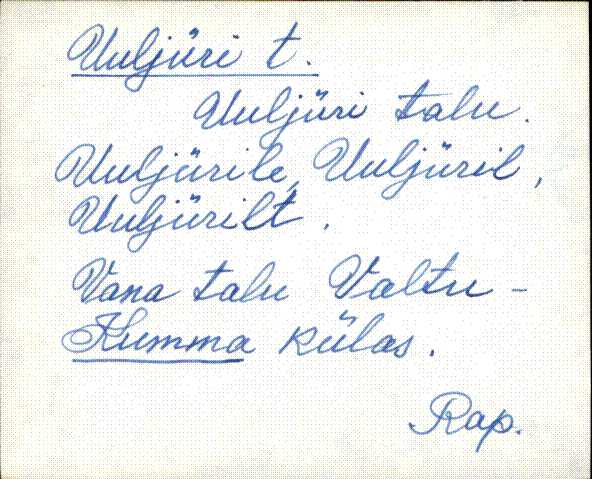 Uuljüri t.
Uuljüri talu.
Uuljürile, Uuljüril,
Uuljürilt.
Vana talu Valtu-
Kumma külas.
Rap.